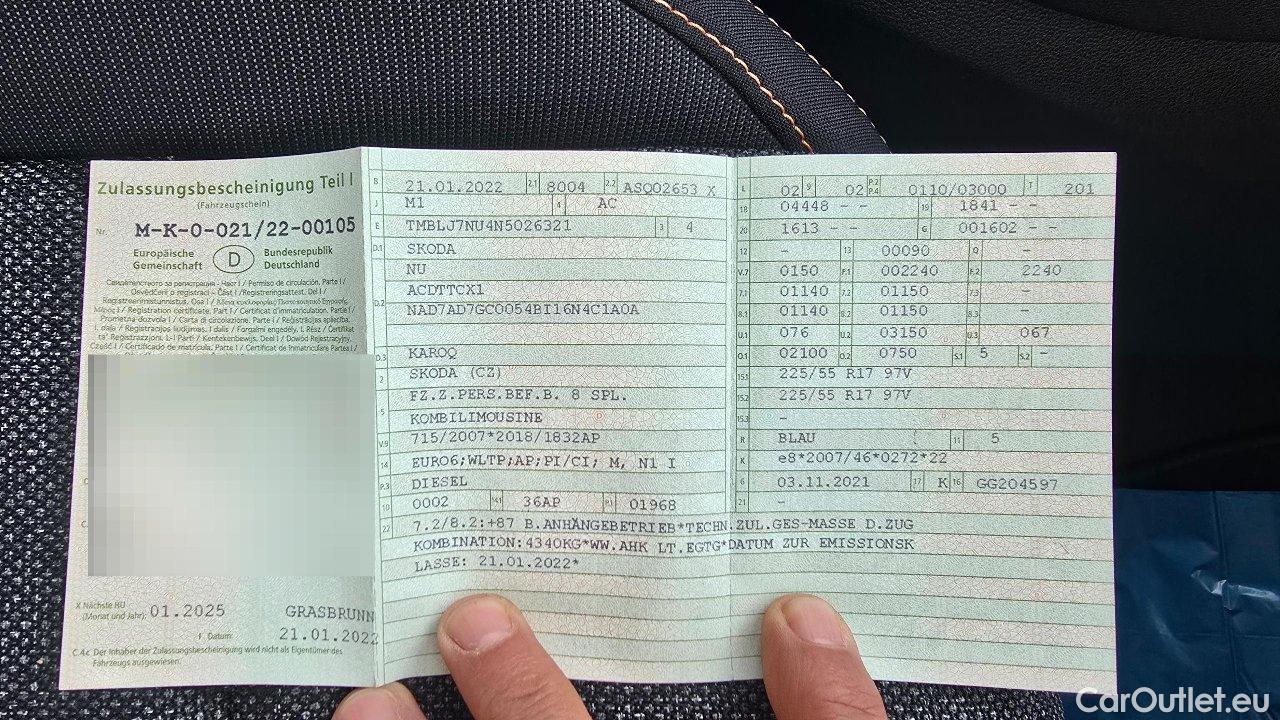 Zulassungsbescheinigung Teil I
(Fahrzeugschein)
Nr. M-K-0-021/22-00105
Europäische Gemeinschaft D Bundesrepublik Deutschland
Свидетелство за регистрация - Част I / Permiso de circulación. Parte I /
Osvědčení o registraci - Část I / Registreringsattest. Del I /
Registreerimistunnistus. Osa I / Άδεια κυκλοφορίας
Μέρος I / Registration certificate. Part I / Certificat d'immatriculation. Partie I /
Prometna dozvola I / Carta di circolazione. Parte I / Reģistrācijas apliecība.
I. daļa / Registracijos liudijimas. I dalis / Forgalmi engedély. I. Rész / Ċertifikat
ta' Reġistrazzjoni. L-I Parti / Kentekenbewijs. Deel I / Dowód Rejestracyjny.
Część I / Certificado de matrícula. Parte I / Certificat de înmatriculare Partea I /
X Nächste HU (Monat und Jahr) 01.2025 GRASBRUNN
I Datum: 21.01.2022
C.4c Der Inhaber der Zulassungsbescheinigung wird nicht als Eigentümer des
Fahrzeugs ausgewiesen.
B 21.01.2022 2.1 8004 2.2 ASQ02653 X
J M1 4 AC
E TMBLJ7NU4N5026321 3 4
D.1 SKODA
NU
D.2 ACDTTCX1
NAD7AD7GC0054BI16N4C1A0A
D.3 KAROQ
2 SKODA (CZ)
5 FZ.Z.PERS.BEF.B. 8 SPL.
KOMBILIMOUSINE
V.9 715/2007*2018/1832AP
14 EURO6;WLTP;AP;PI/CI; M, N1 I
P.3 DIESEL
10 0002 14.1 36AP P.1 01968
22 7.2/8.2:+87 B.ANHÄNGEBETRIEB*TECHN.ZUL.GES-MASSE D.ZUG
KOMBINATION:4340KG*WW.AHK LT.EGTG*DATUM ZUR EMISSIONSK
LASSE: 21.01.2022*
L 02 9 02 P.2 P.4 0110/03000 T 201
18 04448 - - 19 1841 - -
20 1613 - - G 001602 - -
12 - 13 00090 Q -
V.7 0150 F.1 002240 F.2 2240
7.1 01140 7.2 01150 7.3 -
8.1 01140 8.2 01150 8.3 -
U.1 076 U.2 03150 U.3 067
O.1 02100 O.2 0750 S.1 5 S.2 -
15.1 225/55 R17 97V
15.2 225/55 R17 97V
15.3 -
R BLAU 11 5
K e8*2007/46*0272*22
6 03.11.2021 17 K 16 GG204597
21 -
CarOutlet.eu